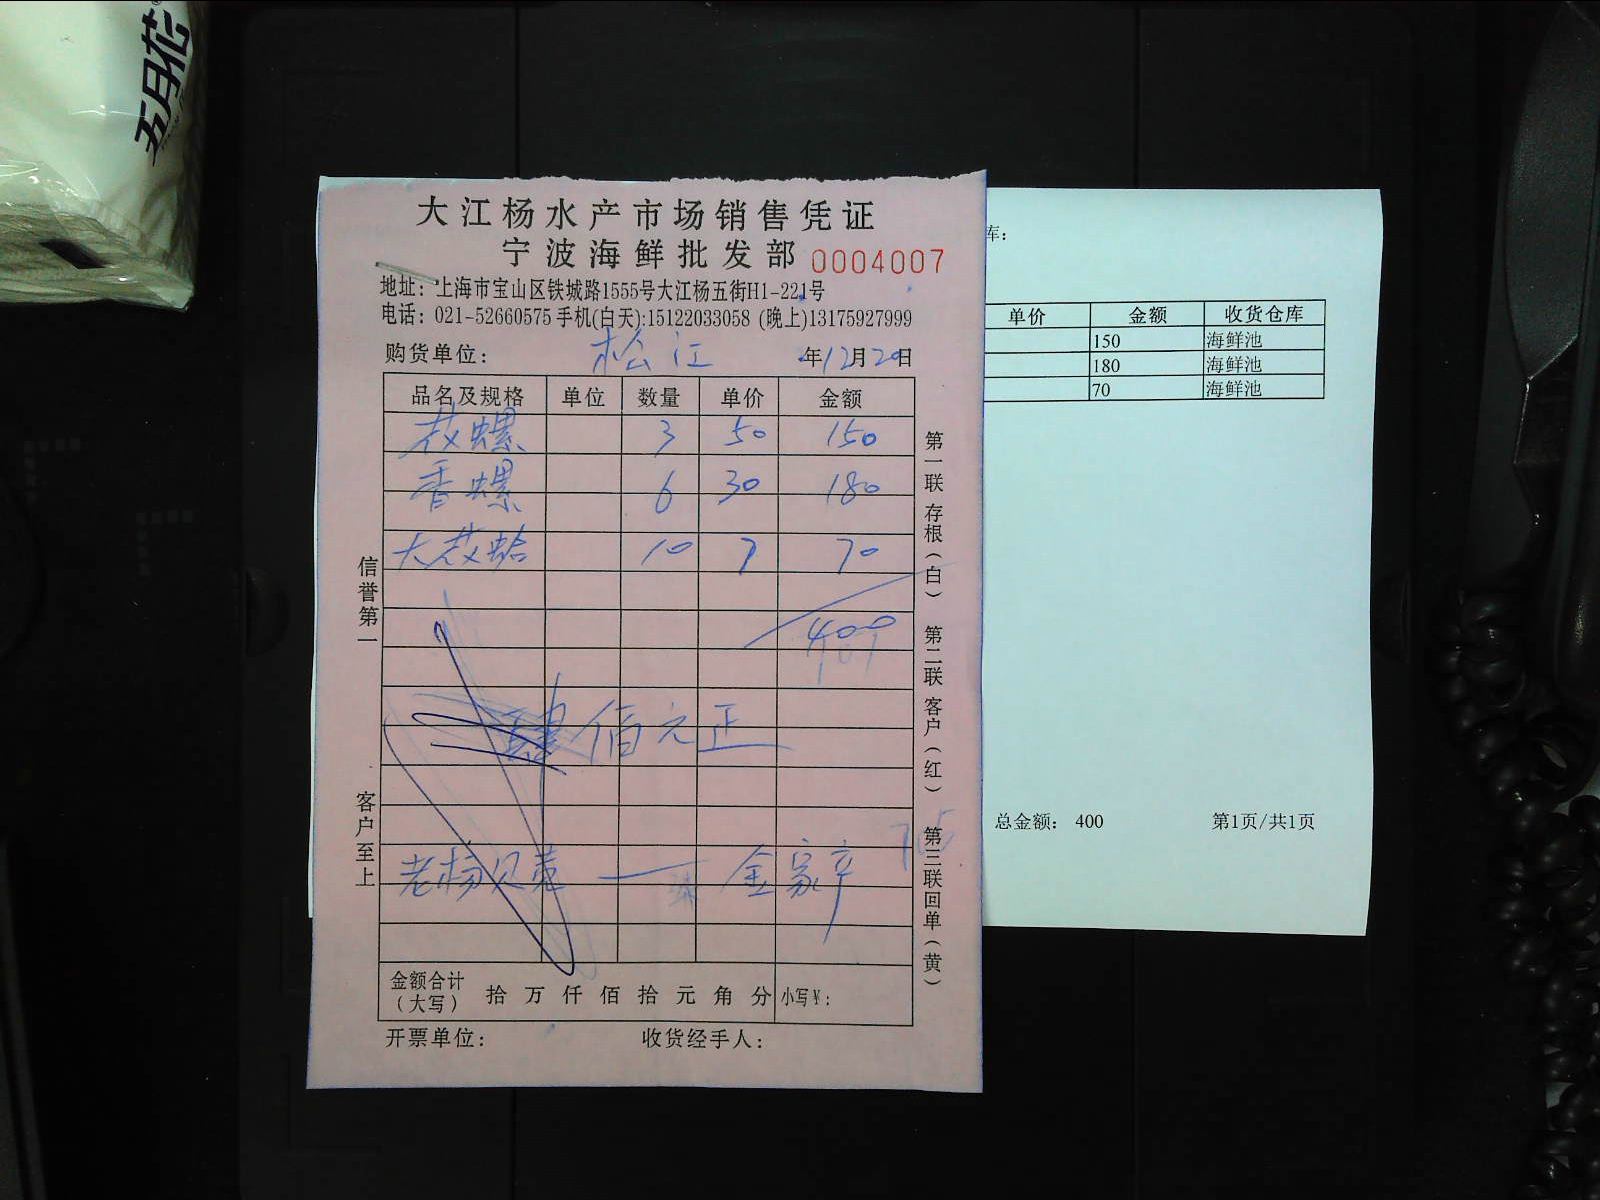 五月花
大江杨水产市场销售凭证
宁波海鲜批发部 0004007
地址：上海市宝山区铁城路1555号大江杨五街H1-221号
电话：021-52660575 手机(白天):15122033058 (晚上)13175927999
购货单位： 松江 年12月20日
品名及规格 单位 数量 单价 金额
花螺 3 50 150
香螺 6 30 180
大花蛤 10 7 70
400
肆佰元正
老杨贝壳 — 金家辛
金额合计（大写） 拾 万 仟 佰 拾 元 角 分 小写¥：
开票单位： 收货经手人：
信誉第一
客户至上
第一联 存根（白）
第二联 客户（红）
第三联 回单（黄）
库：
单价 金额 收货仓库
150 海鲜池
180 海鲜池
70 海鲜池
总金额： 400 第1页/共1页